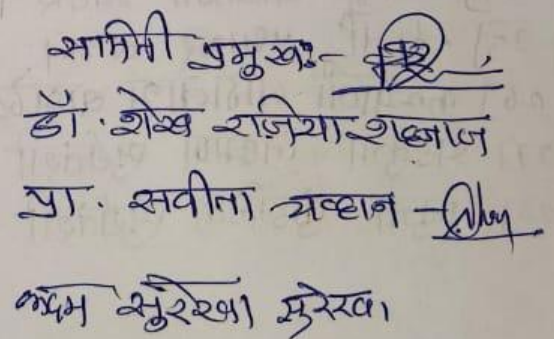 सामिती प्रमुख:-
डॉ. शेख रजिया शहनाज
प्रा. सवीता चव्हान -
कदम सुरेखा सुरेखा